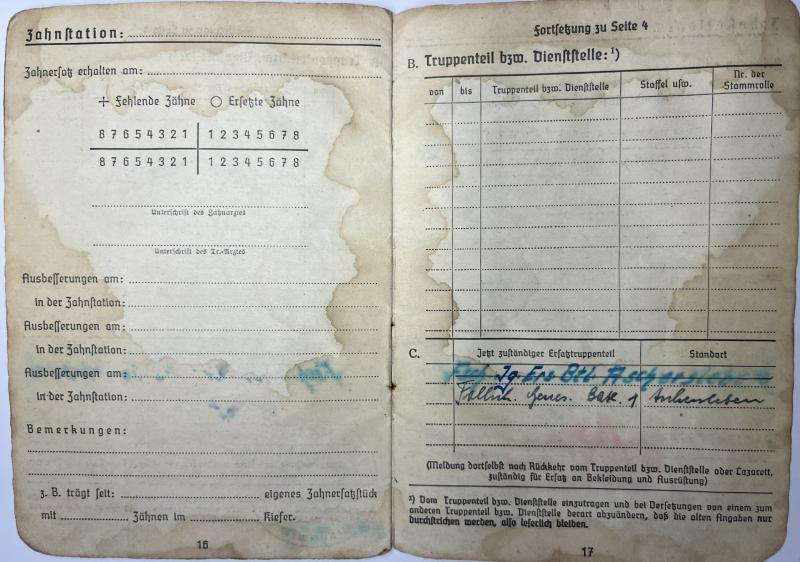 Zahnstation:
Zahnersatz erhalten am:
+ Fehlende Zähne ○ Ersetzte Zähne
8 7 6 5 4 3 2 1 1 2 3 4 5 6 7 8
8 7 6 5 4 3 2 1 1 2 3 4 5 6 7 8
Unterschrift des Zahnarztes
Unterschrift des Tr.-Arztes
Ausbesserungen am:
in der Zahnstation:
Ausbesserungen am:
in der Zahnstation:
Ausbesserungen am:
in der Zahnstation:
Bemerkungen:
z. B. trägt seit: eigenes Zahnersatzstück
mit Zähnen im Kiefer.
16
Fortsetzung zu Seite 4
B. Truppenteil bzw. Dienststelle:¹)
von bis Truppenteil bzw. Dienststelle Staffel usw. Nr. der Stammrolle
C. Jetzt zuständiger Ersatztruppenteil Standort
Jg Ers Btl Aschersleben
Fallsch. Genes. Batl. 1 Aschersleben
(Meldung dortselbst nach Rückkehr vom Truppenteil bzw. Dienststelle oder Lazarett,
zuständig für Ersatz an Bekleidung und Ausrüstung)
¹) Vom Truppenteil bzw. Dienststelle einzutragen und bei Versetzungen von einem zum
anderen Truppenteil bzw. Dienststelle derart abzuändern, daß die alten Angaben nur
durchstrichen werden, also leserlich bleiben.
17